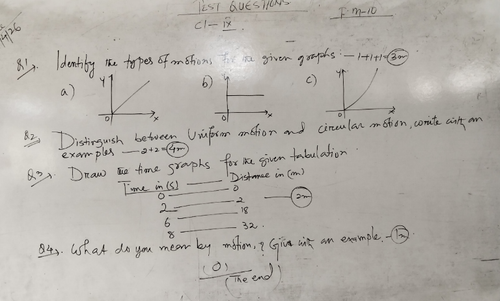 TEST QUESTIONS
Cl - IX
F m-10
Q1. Identify the types of motions for the given graphs:- 1+1+1=3m
a) Y b) Y c) Y
O X O X O X
Q2. Distinguish between Uniform motion and circular motion, write with an
examples — 2+2=4m
Q3. Draw the time graphs for the given tabulation
Time in (s) Distance in (m)
0 0
2 2 — 2m
6 18
8 32
Q4. What do you mean by motion,? Give with an example, - 1m
(O)
(The end)